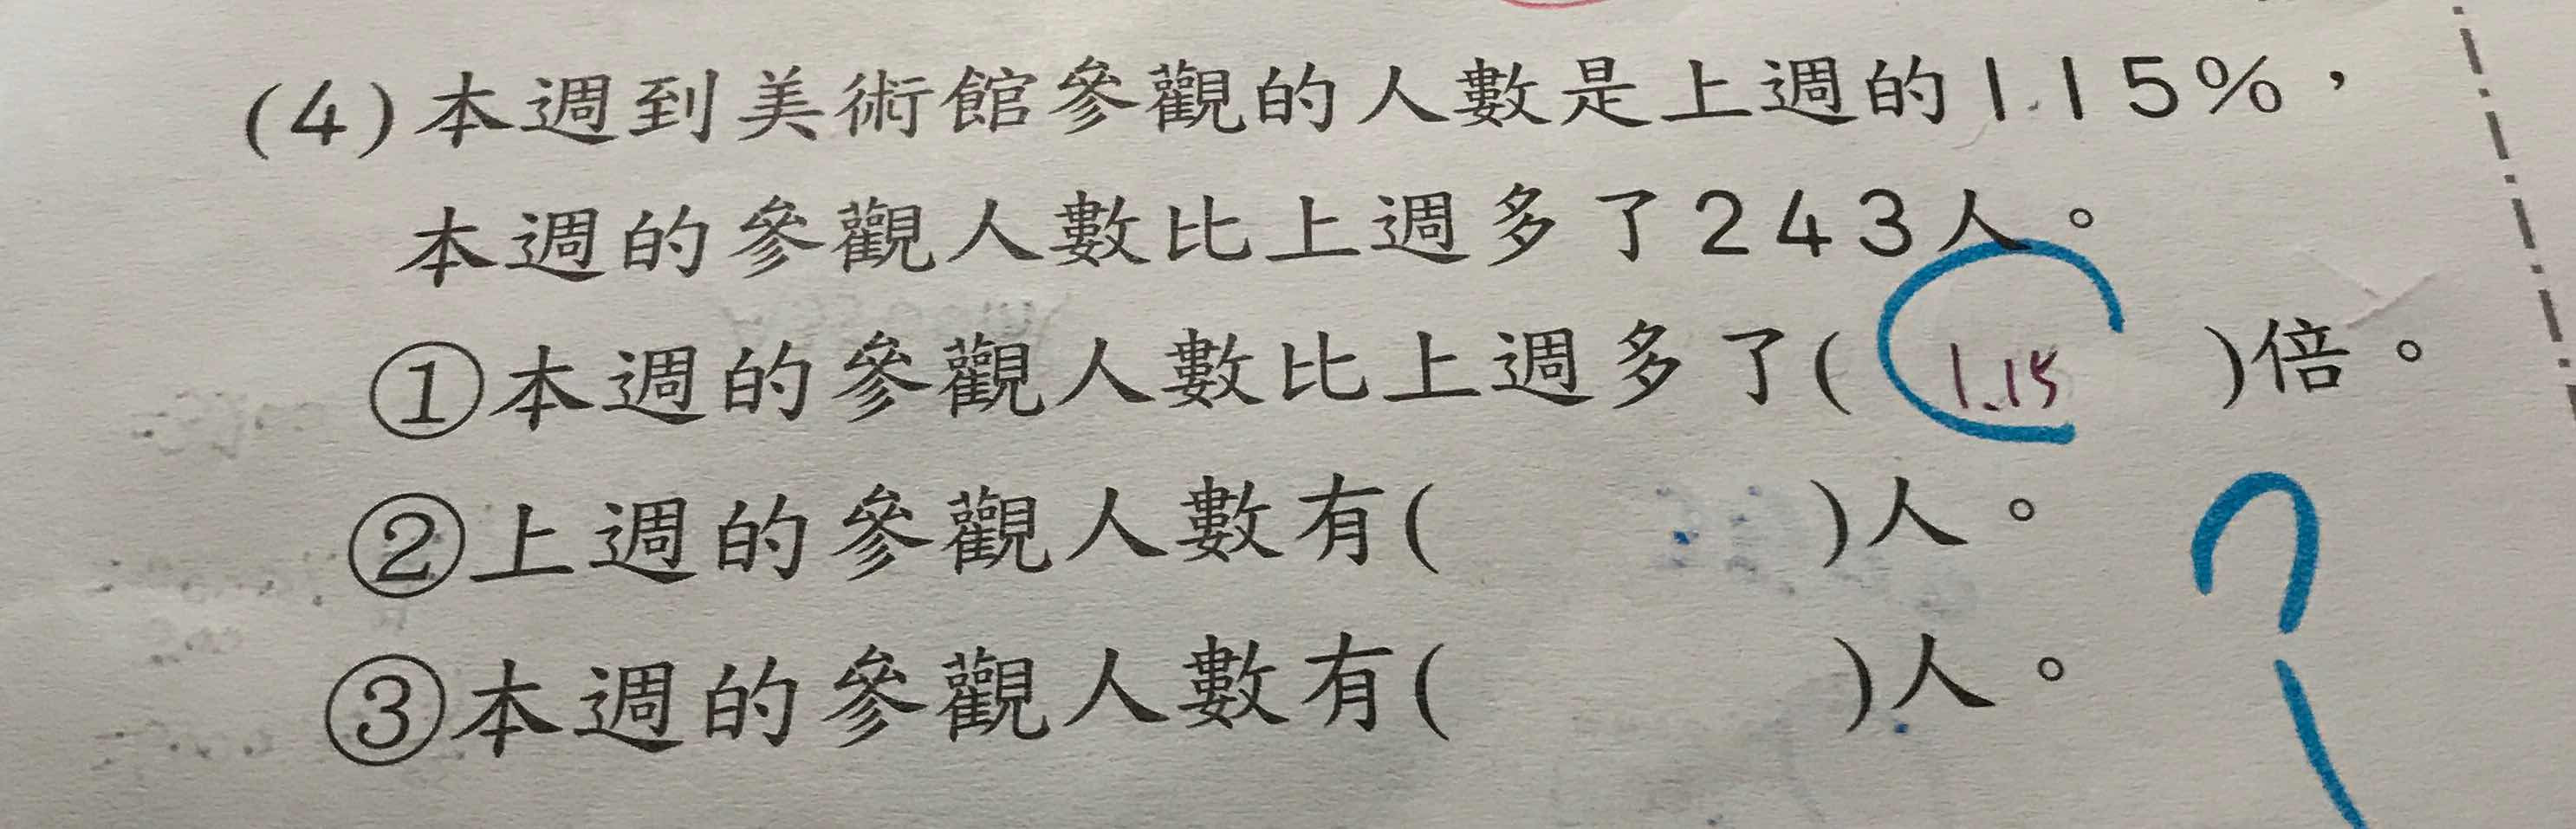 (4)本週到美術館參觀的人數是上週的115%，
本週的參觀人數比上週多了243人。
①本週的參觀人數比上週多了( 1.15 )倍。
②上週的參觀人數有( )人。
③本週的參觀人數有( )人。